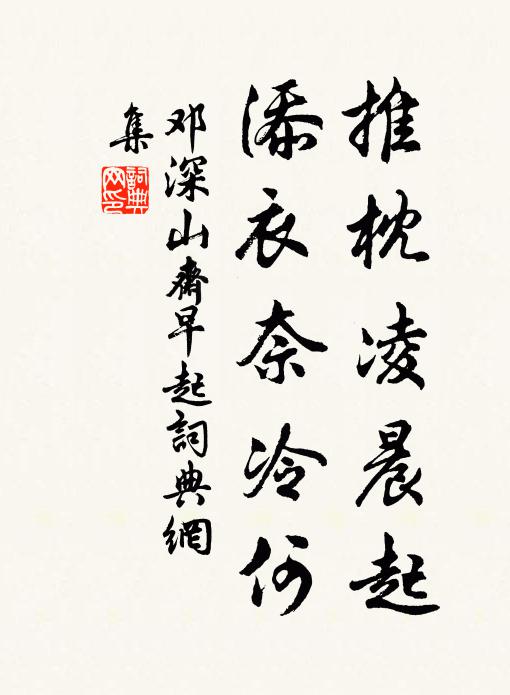 推枕凌晨起
添衣奈冷何
邓深山齋早起詞典網
集
詞典
网印